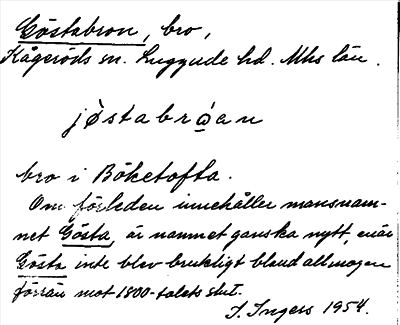 Göstabron, bro,
Kågeröds sn. Luggude hd. Mhs län.
jøstabrωan
bro i Böketofta.
Om förleden innehåller mansnam-
net Gösta, är namnet ganska nytt, enär
Gösta inte blev brukligt bland allmogen
förrän mot 1800-talets slut.
S. Ingers 1954.